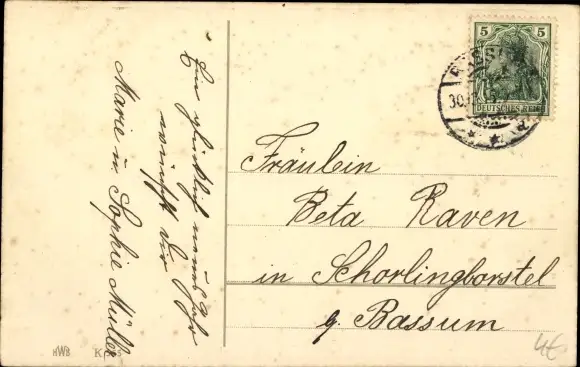 Ein glücklich neues Jahr
wünscht Dir
Marie u. Sophie Müller
5 5
DEUTSCHES REICH
30.
Fräulein
Beta Raven
in Schorlingborstel
b. Bassum
HWB
4€